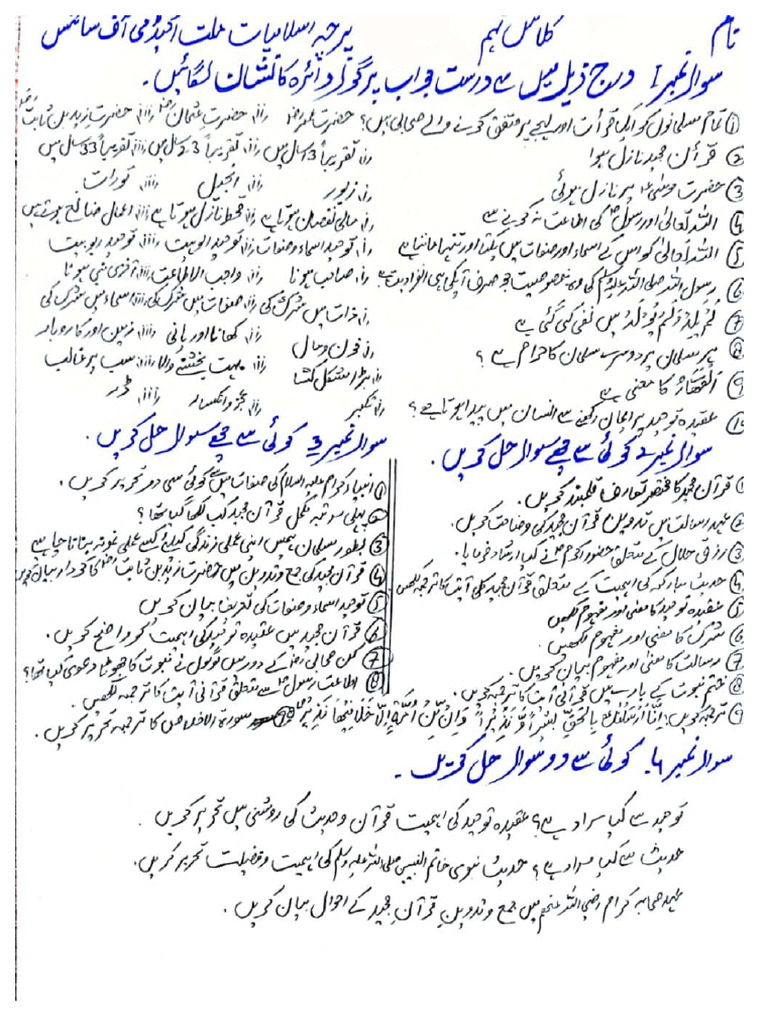 نام کلاس نہم پرچہ اسلامیات ملت اکیڈمی آف سائنس
سوال نمبر 1 درج ذیل میں سے درست جواب پر گول دائرہ کا نشان لگائیں۔
① تمام مسلمانوں کو ایک قرأت اور لہجے پر متفق کرنے والے صحابی ہیں؟ حضرت عمرؓ (ii) حضرت عثمانؓ (iii) حضرت زید بن ثابتؓ
② قرآن مجید نازل ہوا (i) تقریباً 13 سال میں (ii) تقریباً 23 سال میں (iii) تقریباً 33 سال میں
③ حضرت موسیٰؑ پر نازل ہوئی (i) زبور (ii) انجیل (iii) تورات
④ اللہ تعالیٰ اور رسولؐ کی اطاعت نہ کرنے سے (i) مالی نقصان ہوتا ہے (ii) قحط نازل ہوتا ہے (iii) اعمال ضائع ہوتے ہیں
⑤ اللہ تعالیٰ کو اس کے اسماء اور صفات میں یکتا اور تنہا ماننا ہے (i) توحید اسماء و صفات (ii) توحید الوہیت (iii) توحید ربوبیت
⑥ رسول اللہ صلی اللہ علیہ وسلم کی وہ خصوصیت جو صرف آپ کی ہی انفرادیت ہے (i) صاحب ہونا (ii) واجب الاطاعت (iii) آخری نبی ہونا
⑦ لَمْ یَلِدْ وَلَمْ یُوْلَدْ میں نفی کی گئی ہے (i) ذات میں شرک کی (ii) صفات میں شرک کی (iii) اسماء میں شرک کی
⑧ ہر مسلمان پر دوسرے مسلمان کا حرام ہے؟ (i) خون و مال (ii) کھانا اور پانی (iii) زمین اور کاروبار
⑨ اَلْغَفَّارُ کا معنی ہے (i) بڑا مشکل کشا (ii) بہت بخشنے والا (iii) سب پر غالب
10 عقیدہ توحید پر ایمان رکھنے سے انسان میں پیدا ہوتا ہے؟ (i) تکبر (ii) عجز و انکسار (iii) ڈر
سوال نمبر 2 کوئی سے چھے سوال حل کریں۔
① قرآن مجید کا مختصر تعارف قلمبند کریں۔
② عہد رسالت میں تدوین قرآن مجید کی وضاحت کریں۔
③ رزق حلال کے متعلق حضور اکرمؐ نے کیا ارشاد فرمایا۔
④ حدیث مبارکہ کی اہمیت کے متعلق قرآن مجید کی آیت کا ترجمہ لکھیں
⑤ عقیدہ توحید کا معنی اور مفہوم لکھیں
⑥ شرک کا معنی اور مفہوم لکھیں۔
⑦ رسالت کا معنی اور مفہوم بیان کریں۔
⑧ ختم نبوت کے بارے میں قرآنی آیت کا ترجمہ کریں۔
⑨ ترجمہ کریں: اِنَّا اَرْسَلْنٰكَ بِالْحَقِّ بَشِیْرًا وَّ نَذِیْرًا وَاِنْ مِّنْ اُمَّةٍ اِلَّا خَلَا فِیْهَا نَذِیْرٌ
سوال نمبر 3 کوئی سے چھے سوال حل کریں۔
① انبیاء کرام علیہ السلام کی صفات میں سے کوئی سی دو تحریر کریں۔
② پہلی مرتبہ مکمل قرآن مجید کب لکھا گیا تھا؟
③ بطور مسلمان ہمیں اپنی عملی زندگی کیلئے کسے عملی نمونہ بنانا چاہیے
④ قرآن مجید کی جمع و تدوین میں حضرت زید بن ثابتؓ کا کردار بیان کریں
⑤ توحید اسماء و صفات کی تعریف بیان کریں
⑥ قرآن مجید میں عقیدہ توحید کی اہمیت کو واضح کریں۔
⑦ کن صحابیؓ کے دور میں لوگوں نے نبوت کا جھوٹا دعویٰ کیا تھا؟
⑧ اطاعت رسولؐ سے متعلق قرآنی آیت کا ترجمہ لکھیں
⑨ سورۃ الاخلاص کا ترجمہ تحریر کریں۔
سوال نمبر 4۔ کوئی سے دو سوال حل کریں۔
توحید سے کیا مراد ہے؟ عقیدہ توحید کی اہمیت قرآن و حدیث کی روشنی میں تحریر کریں۔
حدیث سے کیا مراد ہے؟ حدیث نبوی خاتم النبیین صلی اللہ علیہ وسلم کی اہمیت و فضیلت تحریر کریں۔
عہد صحابہ کرام رضی اللہ عنہم میں جمع و تدوین قرآن مجید کے احوال بیان کریں۔